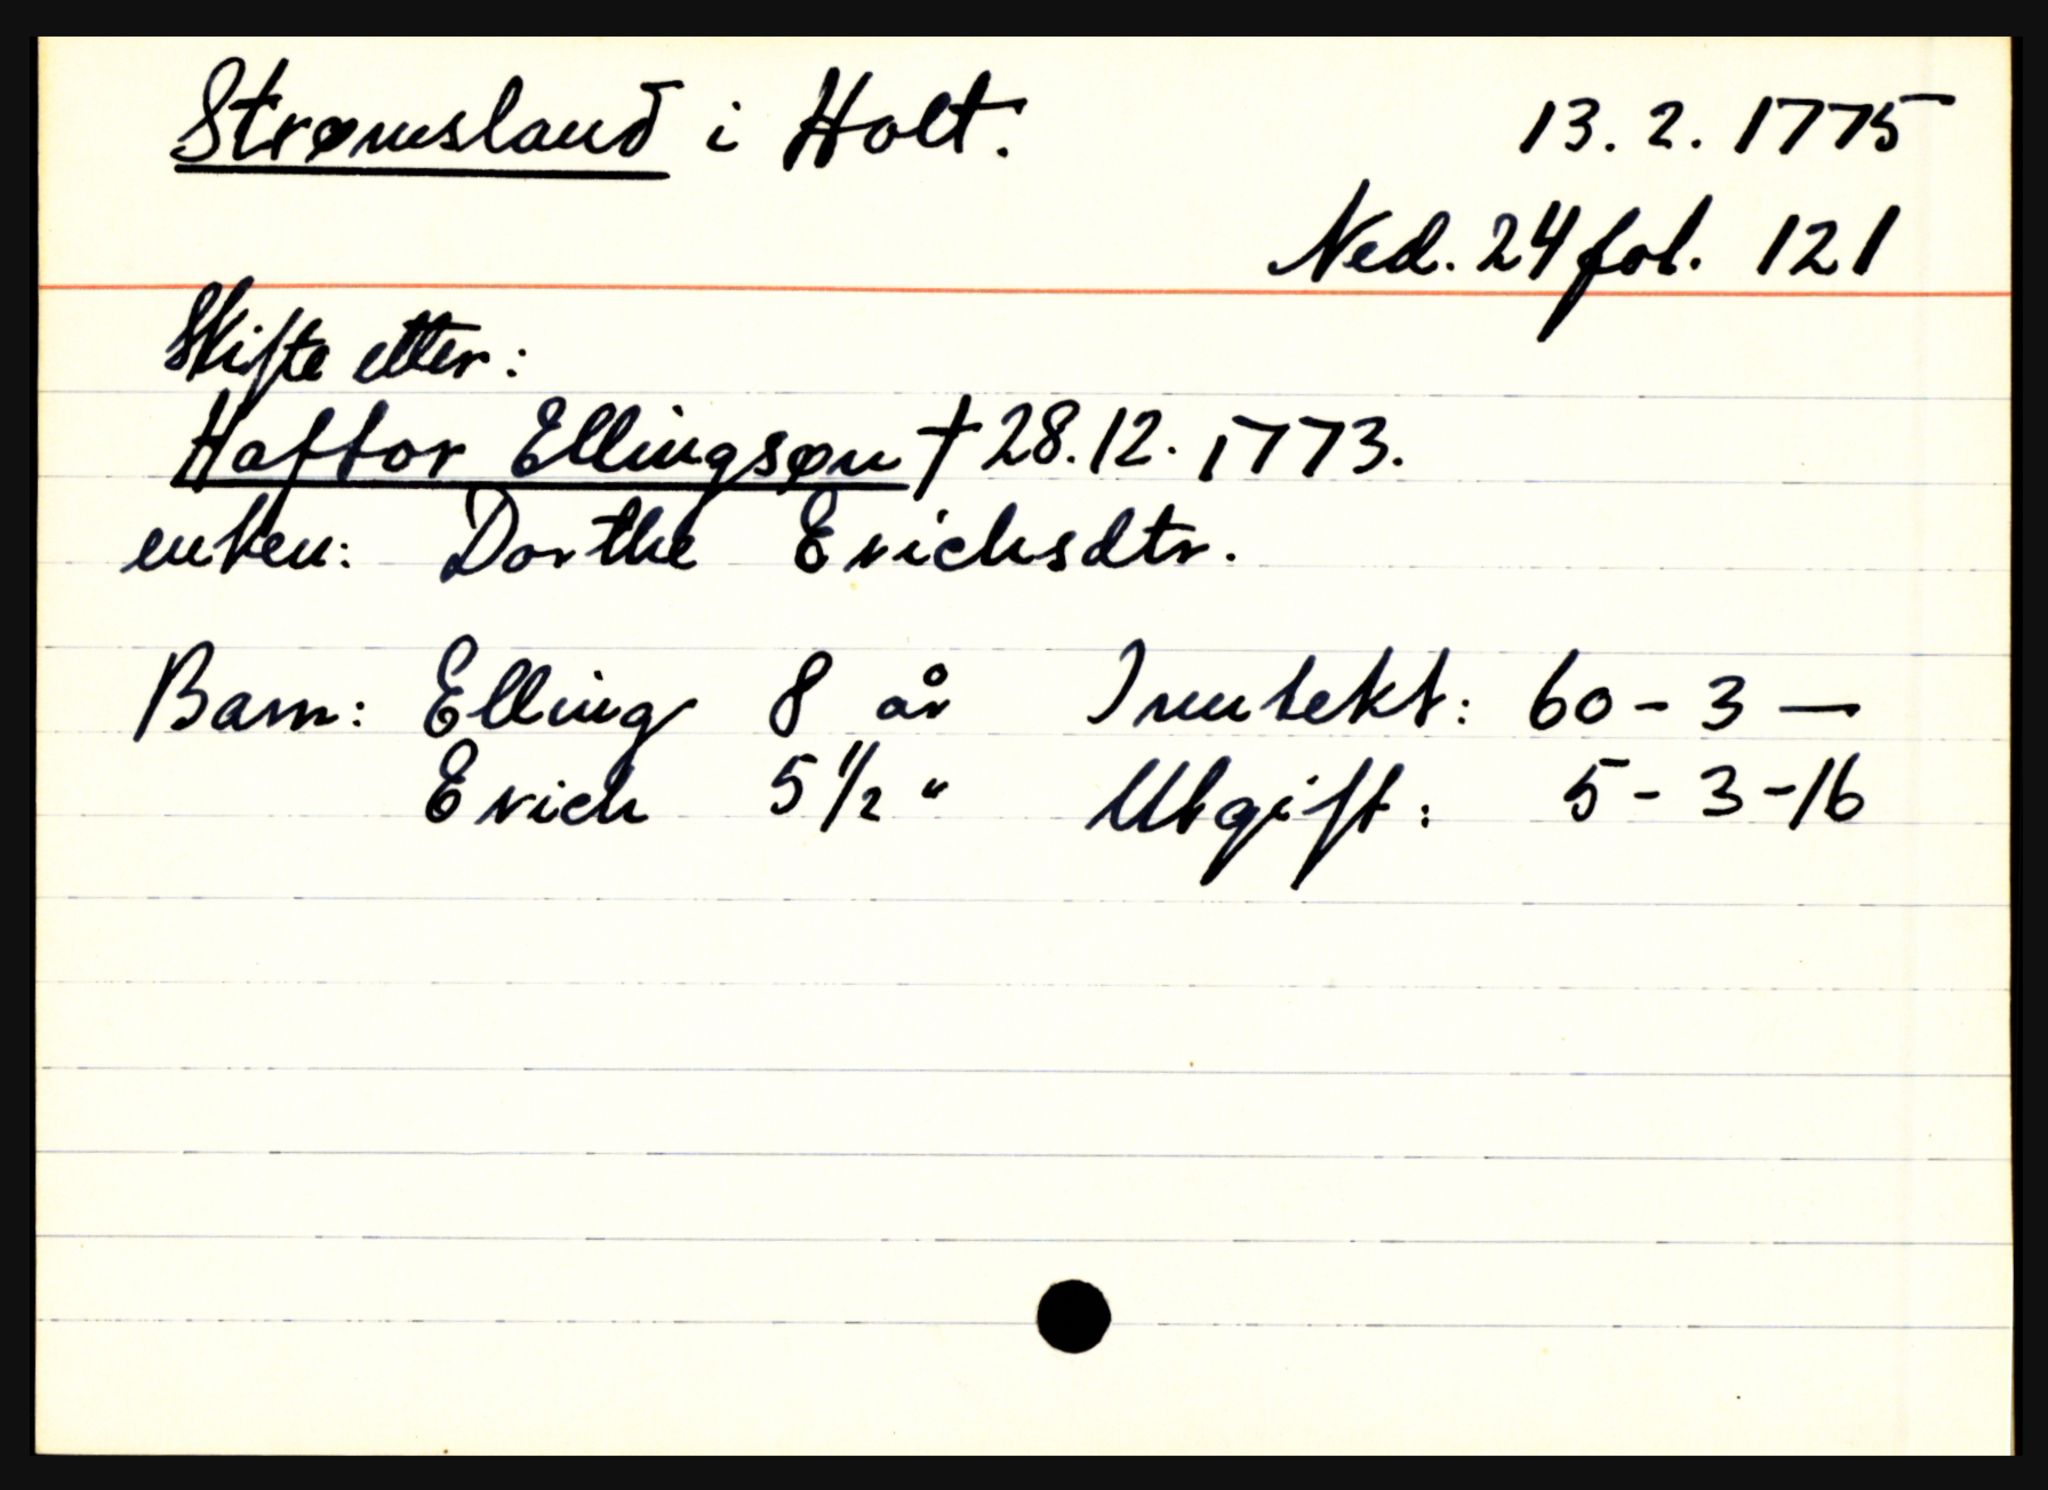 Strømsland i Holt. 13.2.1775
Ned. 24 fol. 121
Skifte etter:
Haftor Ellingsøn † 28.12.1773.
enken: Dorthe Erichsdtr.
Barn: Elling 8 år Inntekt: 60 - 3 —
Erich 5 1/2 " Utgift: 5 - 3 - 16